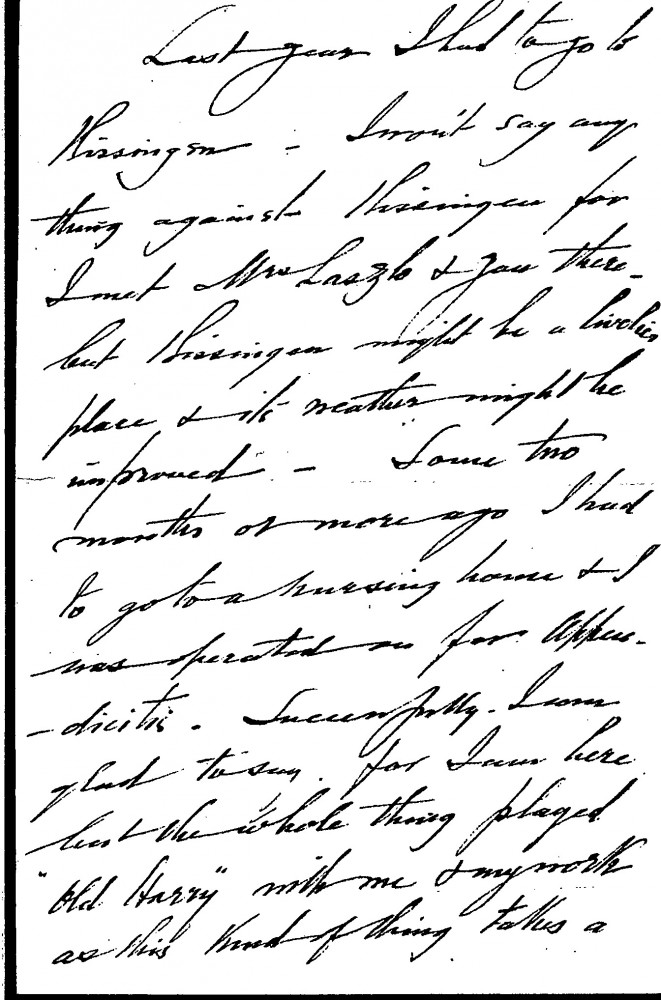 Last year I had to go to
Kissingen - I won't say any
thing against Kissingen for
I met Mrs Laszlo & you there -
but Kissingen might be a livelier
place & its weather might be
improved - Some two
months or more ago I had
to go to a nursing home & I
was operated on for Appen-
-dicitis. Successfully. I am
glad to say. for I am here
but the whole thing played
"Old Harry" with me & my work
as this kind of thing takes a